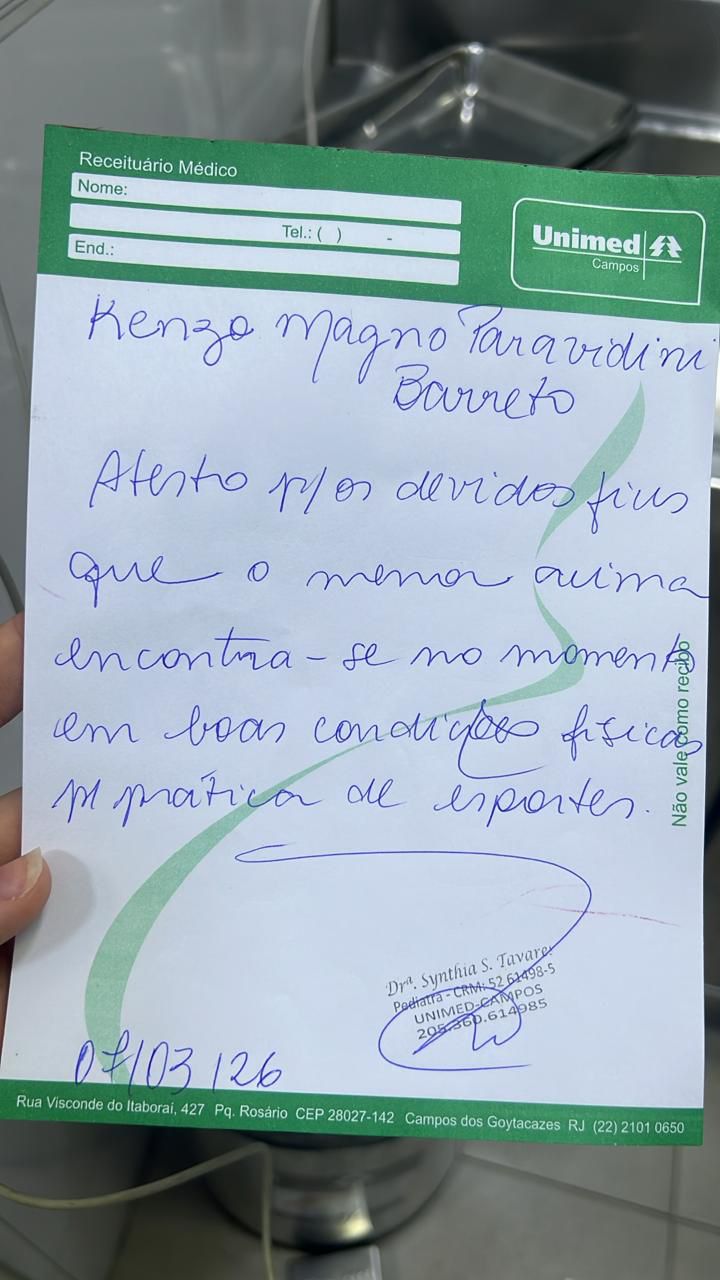 Receituário Médico
Nome:
Tel.: ( ) -
End.:
Unimed
Campos
Kenzo Magno Paravidini
Barreto
Atesto p/ os devidos fins
que o menor acima
encontra-se no momento
em boas condições físicas
p/ prática de esportes.
Não vale como recibo
Drª. Synthia S. Tavares
Pediatra - CRM: 52 61498-5
UNIMED-CAMPOS
205.360.614985
07/03/26
Rua Visconde do Itaboraí, 427 Pq. Rosário CEP 28027-142 Campos dos Goytacazes RJ (22) 2101 0650